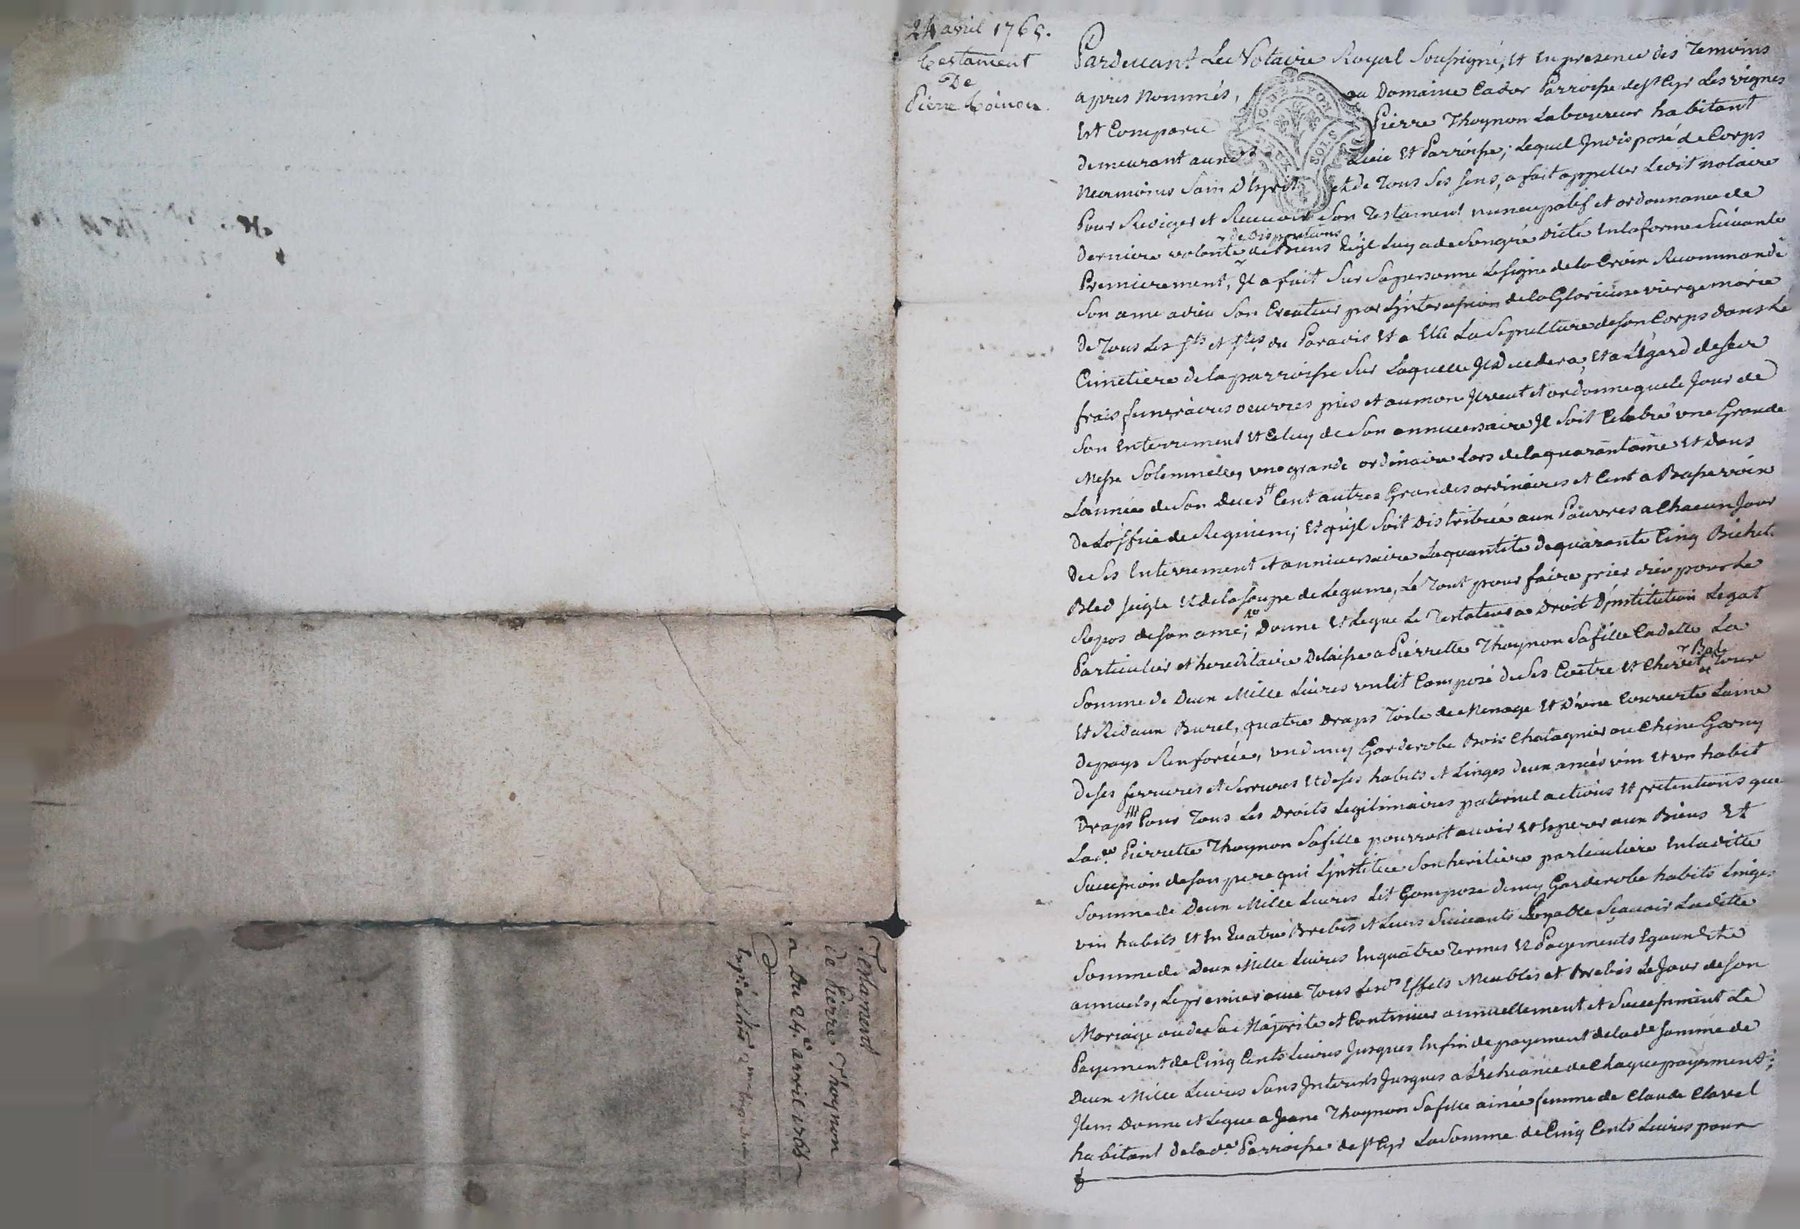 24 avril 1765.
Testament
De
Pierre Toinon
Pardevant Le Notaire Royal Soussigné, Et En presence des Temoins
apres Nommés, au Domaine Cador Parroisse de st Cyr Les vignes
Est Comparu Pierre Thoynon Laboureur habitant
demeurant aud. Lieu Et Parroisse; Lequel Indisposé de Corps
Neanmoins Sain D'Esprit et de Tous Ses Sens, a fait appeller Ledit Notaire
Pour Rediger et Recevoir Son Testament nuncupatif et ordonnance de
de Dispositions
Derniere volonté de Biens qu'jl Luy a de Son gré Dicté En la forme Suivante
Premierement, Jl a fait Sur Sa personne Le Signe de la Croix Recommandé
Son ame a dieu Son Createur par L'jntercession de la Glorieuse vierge marie
De Tous Les sts et stes du Paradis Et a Elû La Sepulture de Son Corps dans Le
Cimetiere de la parroisse Sur Laquelle Jl Decedera, Et a L'Egard de Ses
frais funeraires oeuvres pies et aumon Jl veut et ordonne que le Jour de
Son Enterrement Et Celuy de Son anniversaire Jl Soit Celebré une Grande
Messe Solemnelle, une grande ordinaire Lors de la quarantaine Et dans
L'année de Son Deces Cent autres Grandes ordinaires et Cent a Basse voix
De L'office de Requiem; Et qu'jl Soit Distribuée aux Pauvres a Chacun Jour
De Ses Enterrement et anniversaire La quantité de quarante Cinq Bichet
Bled Seigle Et de la Soupe de Legume, Le Tout pour faire prier dieu pour Le
Repos de Son ame; Donne Et Legue Le Testateur a Droit D'jnstitution Legat
Particulier et hereditaire Delaisse a Pierrette Thoynon Sa fille Cadette La
Somme de Deux Mille Livres un Lit Composé de Ses Coëtre Et Chevet Tour
Et Rideaux Burel, quatre Draps Toile de Menage Et D'une Couverte Laine
de pays Renforcée, un demy Garderobe Bois Chatagnier ou Chene Garny
de Ses ferrures et Serrures Et de Ses habits et Linges deux anées vin Et un habit
Draps Pour Tous Les Droits Legitimaires paternel actions Et pretentions que
Lade Pierrette Thoynon Sa fille pourroit avoir Et Esperer aux Biens Et
Succession de Son pere qui L'jnstitue Son heritiere particuliere En la ditte
Somme de Deux Mille Livres Lit Composé demy Garderobe habits Linges
vin habits Et En quatre Brebis et Leurs Suivants Payable Sçavoir La ditte
Somme de Deux Mille Livres En quatre Termes Et Payements Egaux Et
annuels, Le premier avec Tous Les Effets Meubles et Brebis Le Jour de Son
Mariage ou de Sa Majorité et Continuer annuellement et Successivement Le
Payement de Cinq Cents Livres Jusques En fin de payement de lade Somme de
Deux Mille Livres Sans Interests Jusques a L'Echeance de Chaque payement;
Jtem Donne et Legue a Jeane Thoynon Sa fille ainée femme de Claude Clavel
habitant de lade Parroisse de st Cyr La Somme de Cinq Cents Livres pour
Testament
de Pierre Thoynon
Du 24e avril 1765